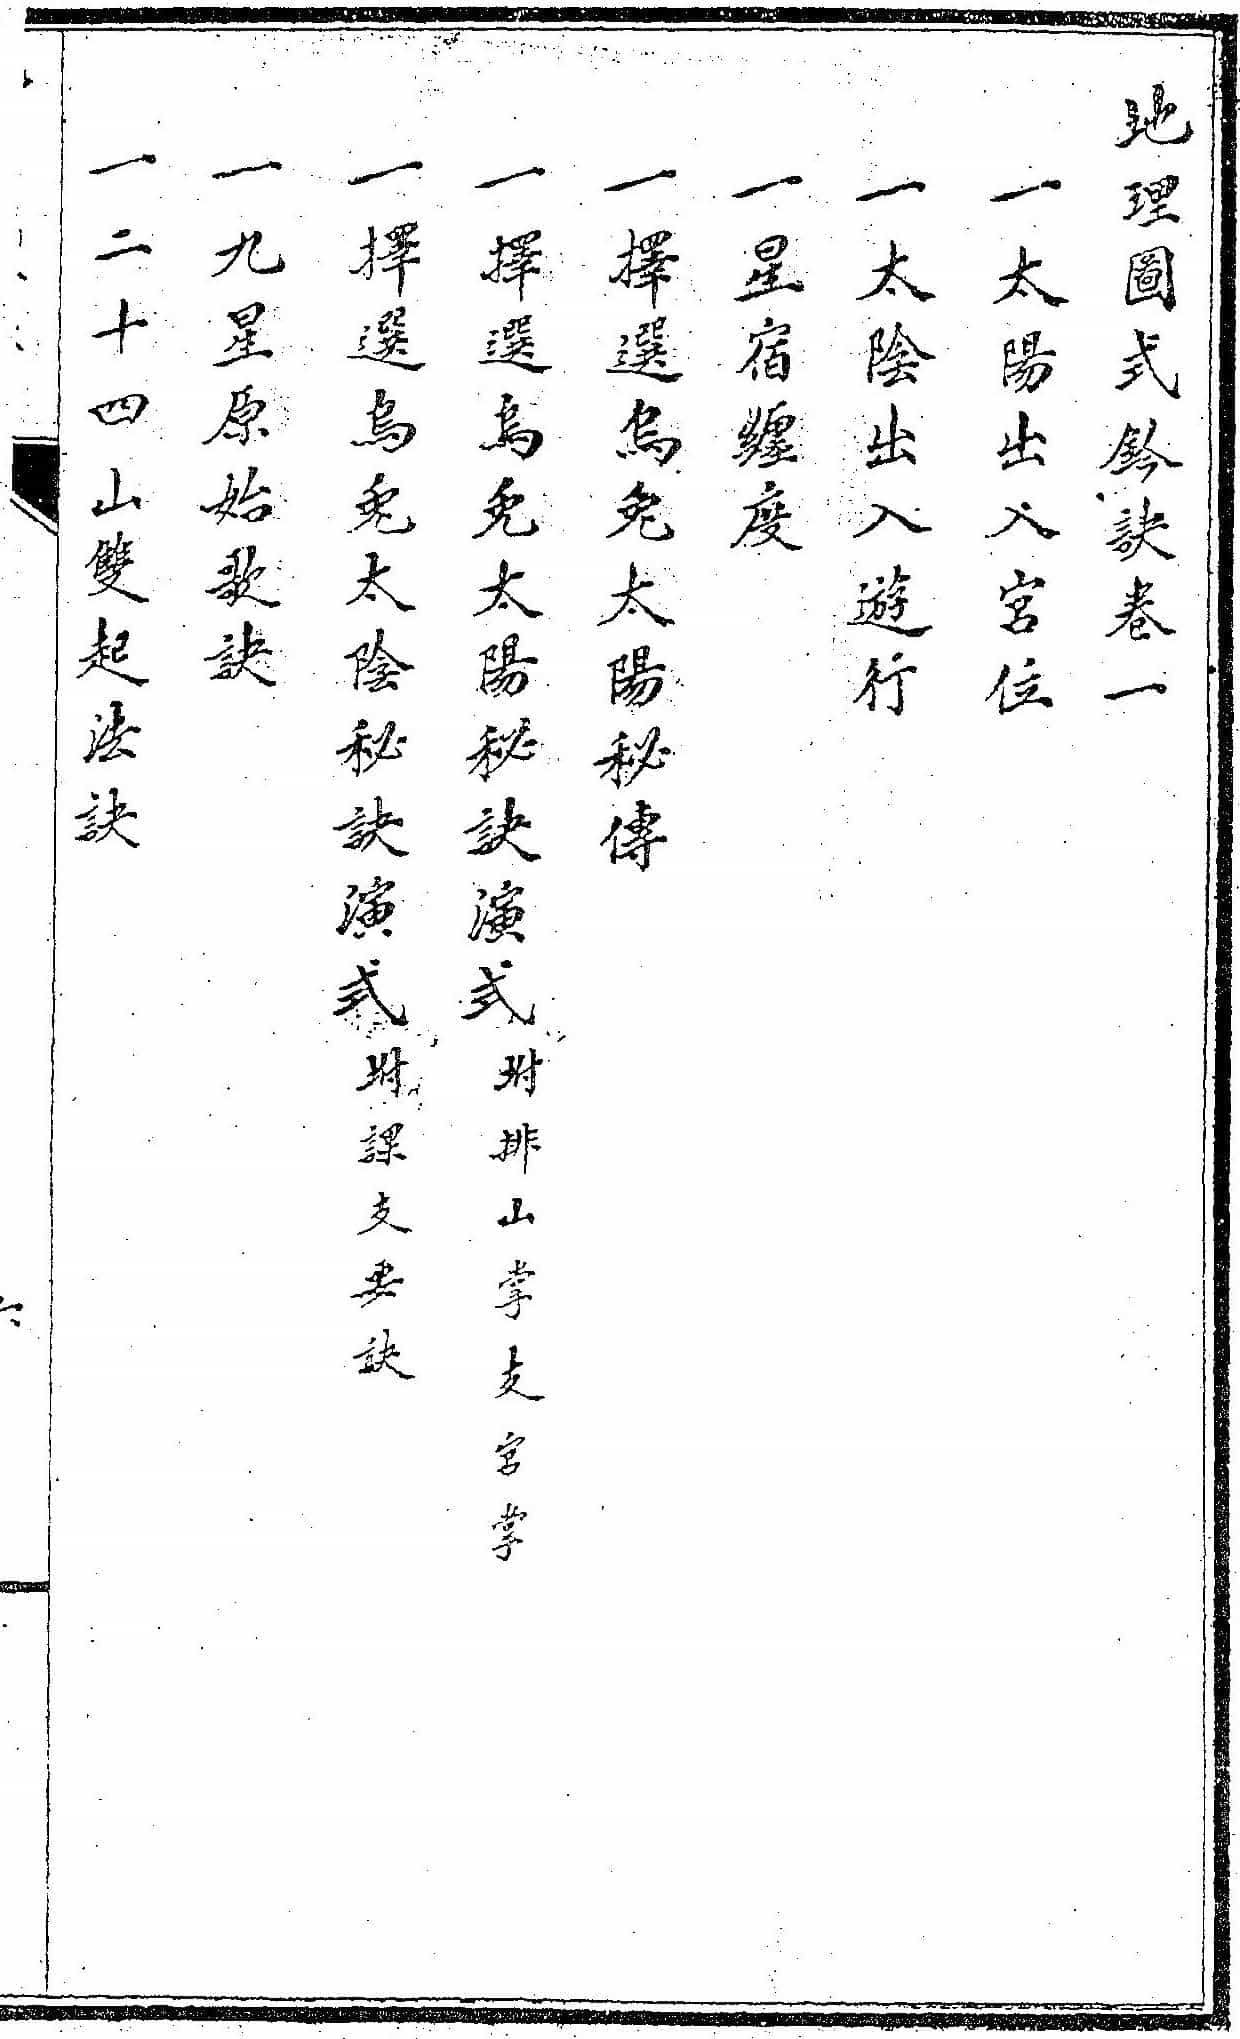 地理圖式鈐訣卷一
一太陽出入宮位
一太陰出入遊行
一星宿纏度
一擇選烏兔太陽秘傳
一擇選烏兔太陽秘訣演式 坿排山掌支宮掌
一擇選烏兔太陰秘訣演式 坿課支要訣
一九星原始歌訣
一二十四山雙起法訣